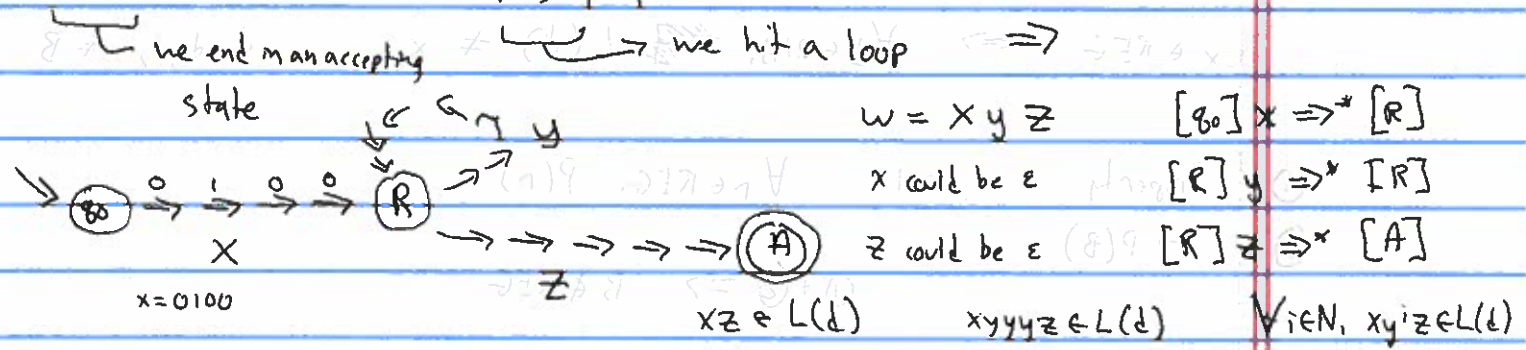 we end in an accepting state
we hit a loop ⟹
w = x y z [q0] x ⟹* [R]
y
0 1 0 0
q0 R x could be ε [R] y ⟹* [R]
X
A z could be ε [R] z ⟹* [A]
Z
x = 0100
xz ∈ L(d) xyyyz ∈ L(d) ∀i∈N, xyⁱz∈L(d)